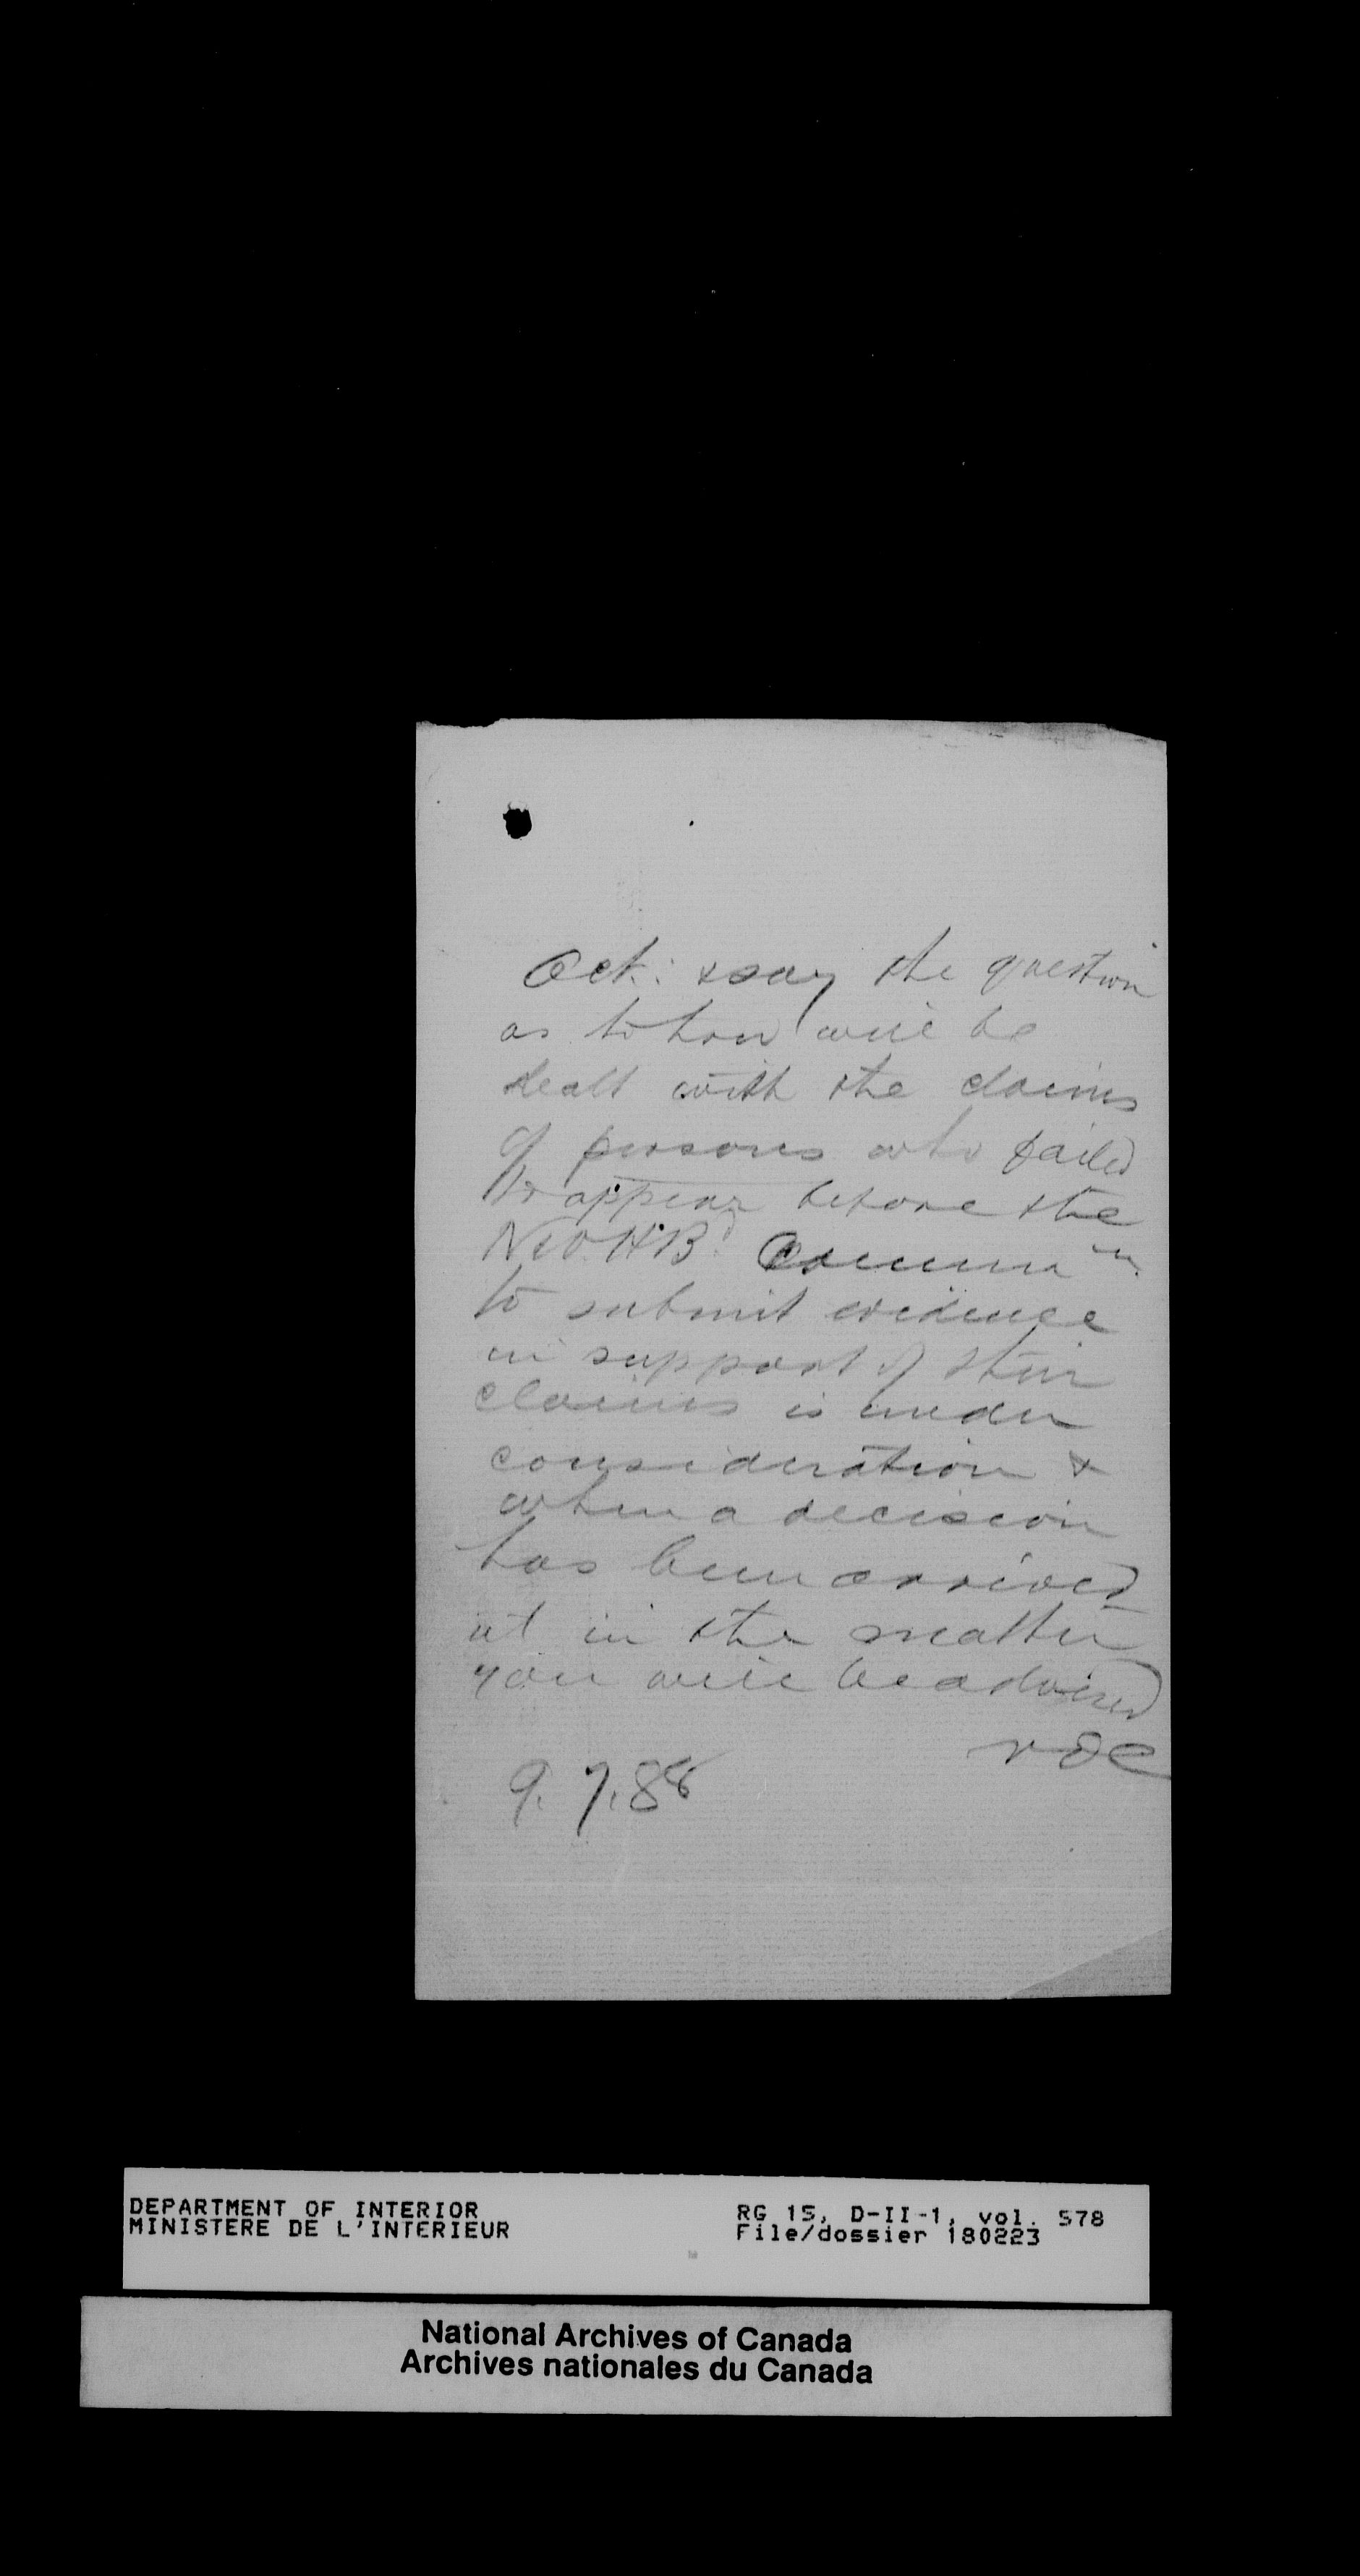 Ack: & say the question
as to how will be
dealt with the claims
of persons who failed
to appear before the
N.W.H.B. Commn
to submit evidence
in support of their
claims is under
consideration &
when a decision
has been arrived
at in the matter
you will be advised
9.7.88
DEPARTMENT OF INTERIOR
MINISTERE DE L'INTERIEUR
RG 15, D-II-1, vol. 578
File/dossier 180223
National Archives of Canada
Archives nationales du Canada